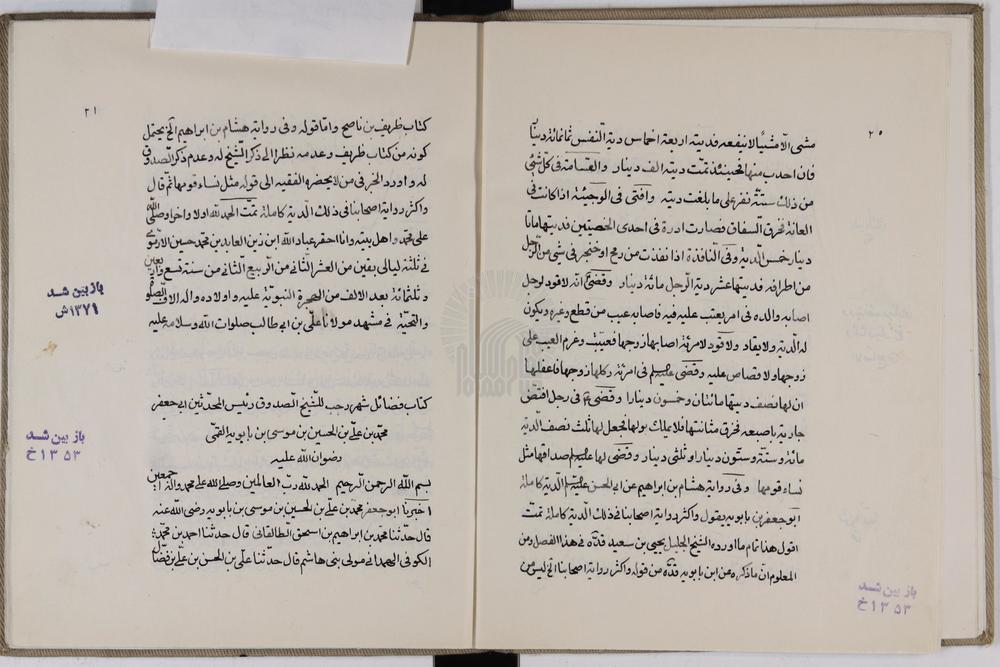 ٢٠
مشى الا مشيًا لا ينفعه فديته اربعة اخماس دية النفس ثمانمائة دينار
فان احدب منها فحينئذ تمت ديته الف دينار والقسامة فى كل شئ
من ذلك ستة نفر على ما بلغت ديته وافتى فى الوجيئة اذا كانت فى
العانة فخرق السفاق فصارت ادرة فى احدى الخصيتين فديتها مأتا
دينار خمس الدية وفى النافذة اذا نفذت من رمح او خنجر فى شئ من الرجل
من اطرافه فديتها عشر دية الرجل مائة دينار وقضى انه لا قود لرجل
اصابه والده فى امر يعتب عليه فيه فاصابه عيب من قطع وغيره ويكون
له الدية ولا يقاد ولا قود لامرئة اصابها زوجها فعيبت وغرم العيب على
زوجها ولا قصاص عليه وقضى فى امرئة ركلها زوجها فاعفلها
ان لها نصف ديتها مائتان وخمسون دينارا وقضى فى رجل افتض
جارية باصبعه فخرق مثانتها فلا يملك بولها فجعل لها ثلث نصف الدية
مائة وستة وستون دينارا وثلثى دينار وقضى لها عليه صداقها مثل
نساء قومها وفى رواية هشام بن ابراهيم عن ابى الحسن الدية كاملة
ابو جعفر بن بابويه يقول واكثر رواية اصحابنا فى ذلك الدية كاملة تمت
اقول هذا تمام ما اورده الشيخ الجليل يحيى بن سعيد قده فى هذا الفصل ومن
المعلوم ان ما ذكره من ابن بابويه قده من قوله واكثر رواية اصحابنا الخ ليس من
باز بین شد
۱۳۵۳ خ
٢١
كتاب ظريف بن ناصح واما قوله وفى رواية هشام بن ابراهيم الخ يحتمل
كونه من كتاب ظريف وعدمه نظرا الى ذكر الشيخ له وعدم ذكر الصدوق
له واورد الخبر فى من لا يحضره الفقيه الى قوله مثل نساء قومها ثم قال
واكثر رواية اصحابنا فى ذلك الدية كاملة تمت الحمد لله اولا واخرا وصلى الله
على محمد واهل بيته وانا احقر عباد الله ابن زين العابدين محمد حسين الارموى
فى ثلثة ليالى بقين من العشر الثانى من الربيع الثانى من سنة تسع واربعين
وثلثمائة بعد الالف من الهجرة النبوية عليه واولاده واله الاف الصلوة
والتحية فى مشهد مولانا على بن ابى طالب صلوات الله وسلامه عليه
كتاب فضائل شهر رجب للشيخ الصدوق رئيس المحدثين ابى جعفر
محمد بن على بن الحسين بن موسى بن بابويه القمى
رضوان الله عليه
بسم الله الرحمن الرحيم الحمد لله رب العالمين وصلى الله على محمد واله اجمعين
اخبرنا ابو جعفر محمد بن على بن الحسين بن موسى بن بابويه رضى الله عنه
قال حدثنا محمد بن ابراهيم بن اسحق الطالقانى قال حدثنا احمد بن محمد
الكوفى الهمدانى مولى بنى هاشم قال حدثنا على بن الحسن بن على بن فضال
باز بین شد
۱۳۷۱ ش
باز بین شد
۱۳۵۳ خ